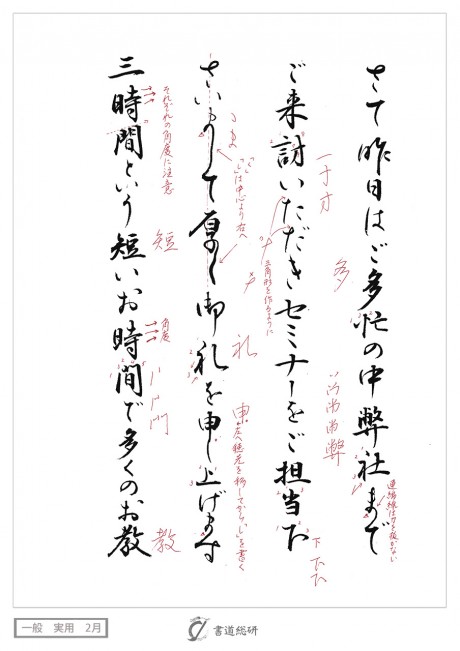 さて昨日はご多忙の中弊社まで
連綿線は力を抜かない
多
弊
ご来討いただきセミナーをご担当下
一寸才
三角形を作るように
下
さいまして厚く御礼を申し上げます
は中心より右へ
礼
申
を書く
三時間という短いお時間で多くのお教
それぞれの角度に注意
短
角度
門
教
一般 実用 2月
書道総研